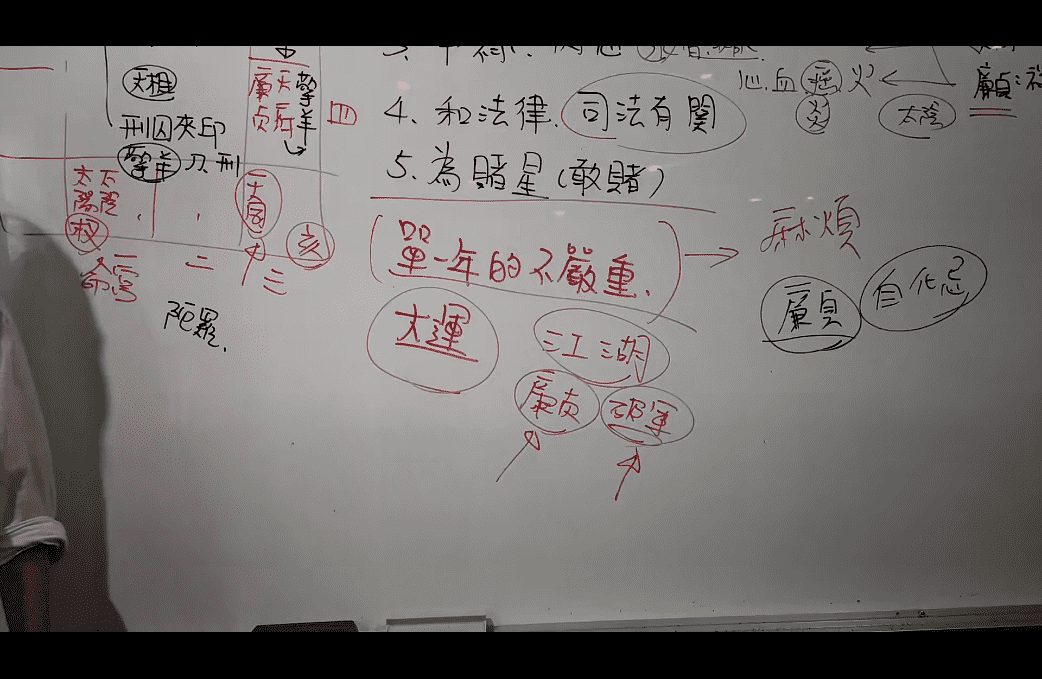 天相
刑囚夾印
擎羊 刀.刑
廉貞 天府 擎羊 四
太陽 太陰
权
命宮
二
三
亥
陀羅.
4、和法律.司法有關
5、為賭星(敢賭)
(單一年的不嚴重.) → 麻煩
大運
江湖
廉貞 破軍
廉貞 自化忌
心.血 火
炎
太陰
廉貞: